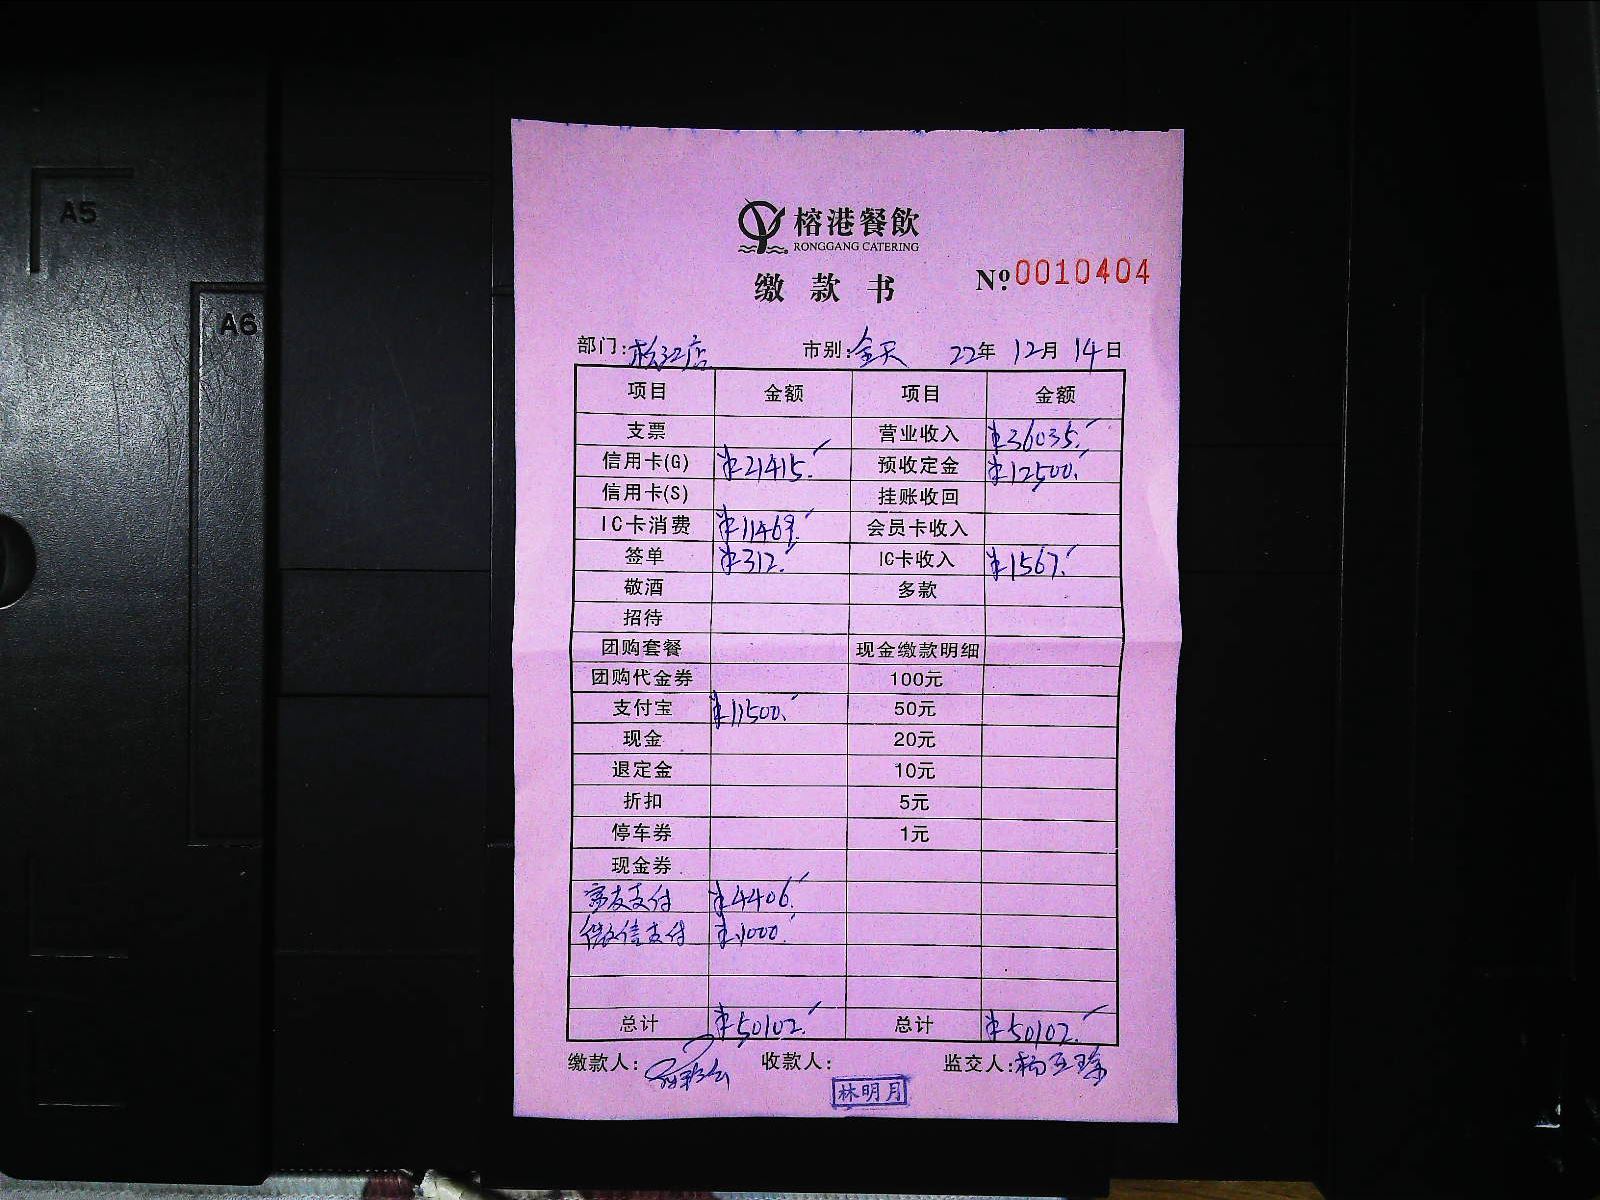 A5
A6
榕港餐飲
RONGGANG CATERING
缴款书 Nº 0010404
部门:松江店 市别:全天 22年 12月 14日
项目 金额 项目 金额
支票 营业收入 ¥36035.
信用卡(G) ¥21415. 预收定金 ¥12500.
信用卡(S) 挂账收回
IC卡消费 ¥11469. 会员卡收入
签单 ¥312. IC卡收入 ¥1567.
敬酒 多款
招待
团购套餐 现金缴款明细
团购代金券 100元
支付宝 ¥11500. 50元
现金 20元
退定金 10元
折扣 5元
停车券 1元
现金券
支付 ¥4406.
微信支付 ¥1000.
总计 ¥50102. 总计 ¥50102.
缴款人: 收款人: 监交人:
林明月